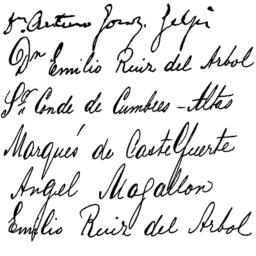 Dn Arturo Jonz. Jelpi
Dn Emilio Ruiz del Arbol
Sr Conde de Cumbres-Altas
Marqués de Castelfuerte
Angel Magallon
Emilio Ruiz del Arbol